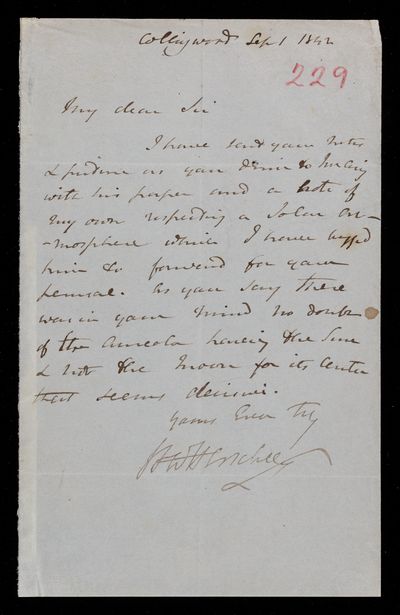 Collingwood Sept 1 1842
229
My dear Sir
I have sent your notes
& as you desire to
with his paper and a note of
my own respecting a Solar at-
-mosphere which I have begged
him to forward for your
perusal. As you say there
was in your mind no doubt
of the Aureola having the Sun
& not the Moon for its Center
that seems decisive.
Yours Ever Try
JFWHerschel